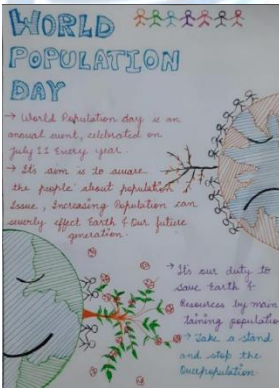 WORLD
POPULATION
DAY
→ World Population day is an
annual event, celebrated on
July 11 Every year
→ Its aim is to aware
the people about population
Issue, Increasing Population can
severly effect Earth & Our future
generation.
→ It's our duty to
save Earth &
Resources by main
taining population
→ Take a stand
and stop the
Overpopulation